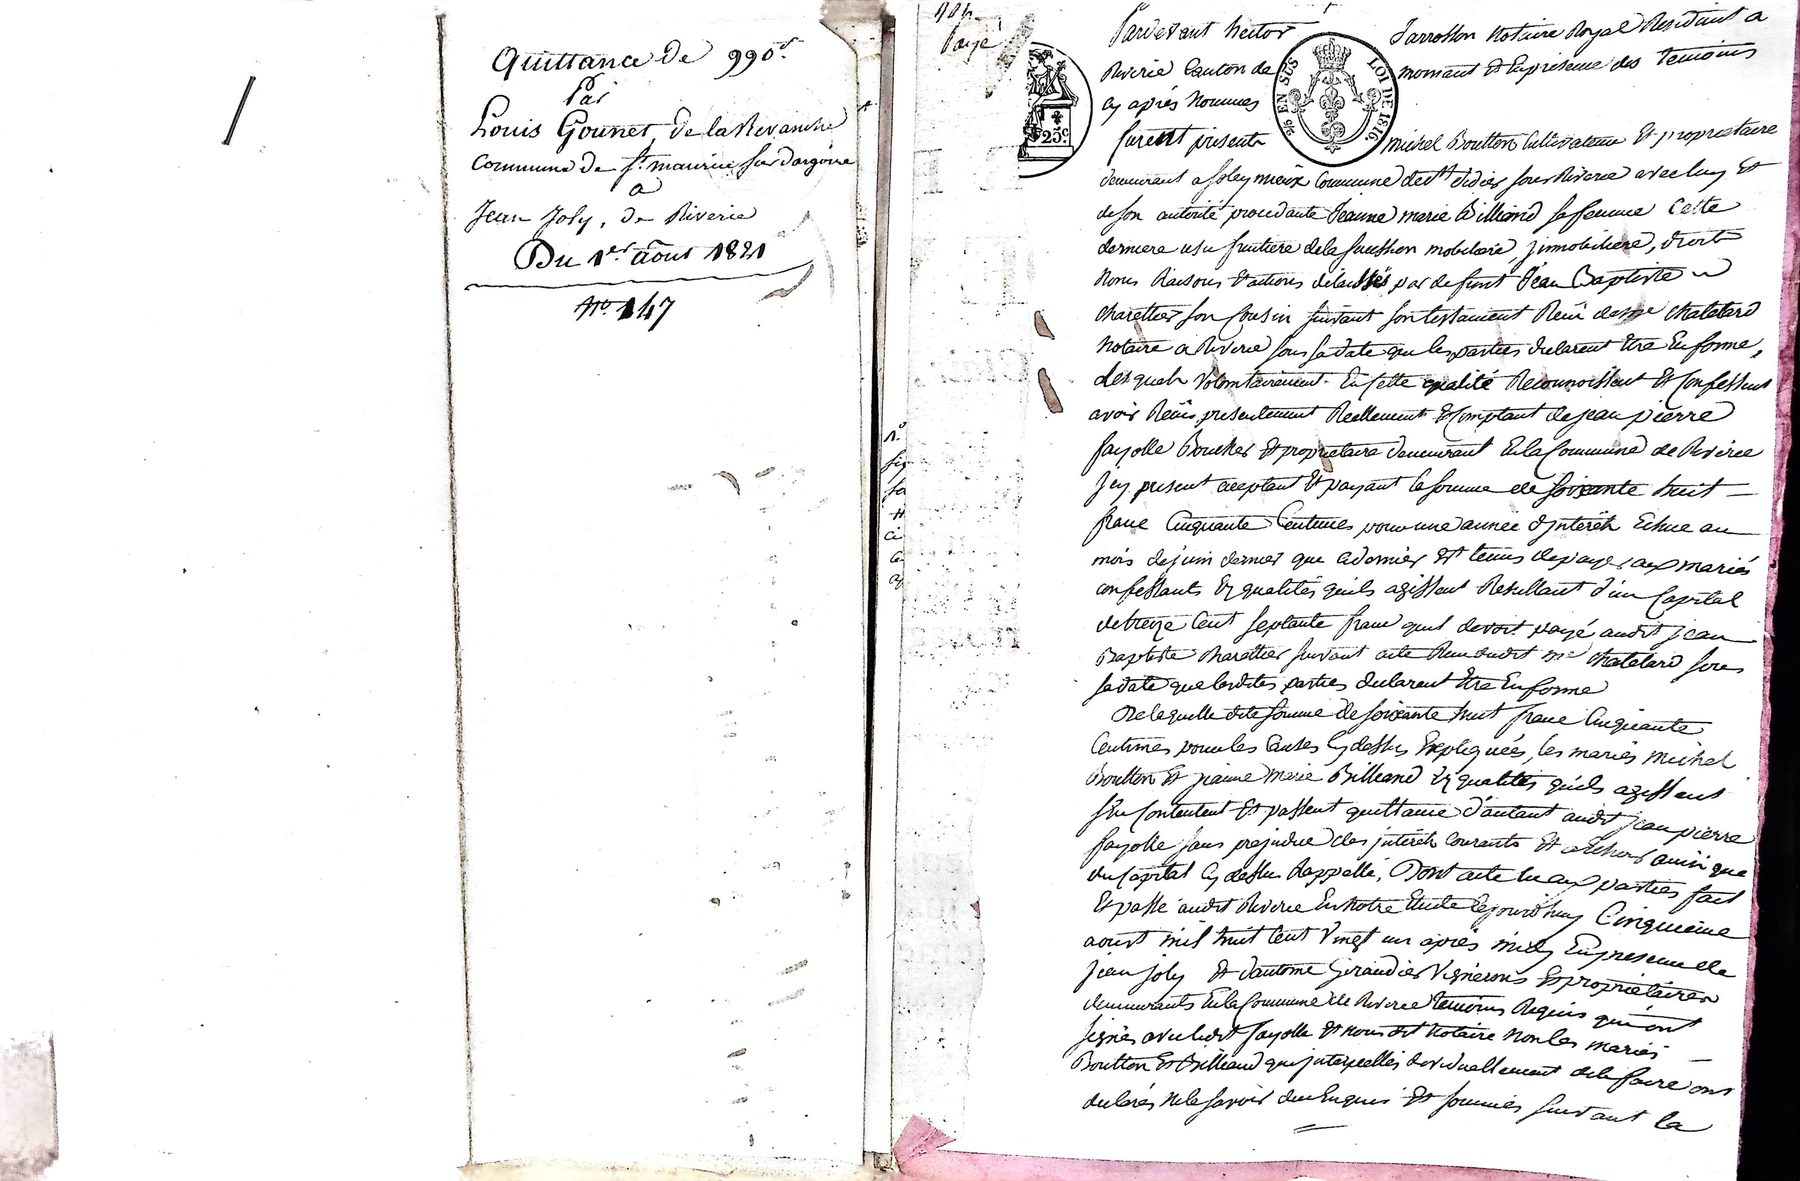 Quittance de 990 fr.
Par
Louis Gounet, de la Revanche
Commune de St. maurice sur dargoire
a
Jean Joly, de Riverie
Du 1er. aout 1821
No. 147
Pardevant hector Jarrosson Notaire Royal Residant a
Riverie Canton de mornant Et En presence des temoins
cy après Nommés
furent presents michel Boutton Cultivateur Et propriétaire
demeurant a soleymieux Commune de St didier sous Riverie avec luy Et
de son autorité procedante Jeanne marie Billiand sa femme Cette
derniere usufruitiere de la succession mobiliaire j immobiliere, droits
Noms Raisons Et actions délaissés par defunt Jean Baptiste
charettier son Cousin suivant son testament Reçu de me chatelard
Notaire a Riverie sous sa date que les parties declarent Etre En forme,
Lesquels Volontairement En Cette qualité Reconnoissent Et Confessent
avoir Reçus presentement Reellement Et Comptant de jean pierre
fayolle Boucher Et propriétaire demeurant En la Commune de Riverie
jcy present acceptant Et payant la somme de soixante huit
franc Cinquante Centimes pour une année d'jnterêts Echue au
mois de juin dernier que ce dernier Est tenus de payer aux mariés
confessants Ez qualités qu'ils agissent Resultant d'un Capital
de treize Cent septante franc quil devoit payé audit jean
Baptiste charettier suivant acte Reçu dudit me chatelard sous
sa date que lesdites parties declarent Etre En forme
De laquelle dite somme de soixante huit franc Cinquante
Centimes pour les Causes Cy dessus Expliquées, les mariés michel
Boutton Et jeanne marie Billiand Ez qualités qu'ils agissent
s'En Contentent Et passent quittance d'autant audit jean pierre
fayolle sans prejudice des jnterêts courants Et a Echoir ainsi que
du Capital Cy dessus Rappellé, Dont acte lu aux parties fait
Et passé audit Riverie En notre Etude Cejourd'huy Cinquieme
aoust mil huit Cent Vingt un après midy En presence de
jean joly Et d'antoine Giraudier Vignerons Et propriétaires
demeurants En la Commune de Riverie temoins Requis qui ont
signés avec ledit fayolle Et nous dit Notaire Non les mariés
Boutton Et Billiand qui jnterpellés jndividuellement de le faire ont
declarés Ne le savoir de ce Enquis Et sommés suivant la
25c.
25 EN SUS
LOI DE 1816.